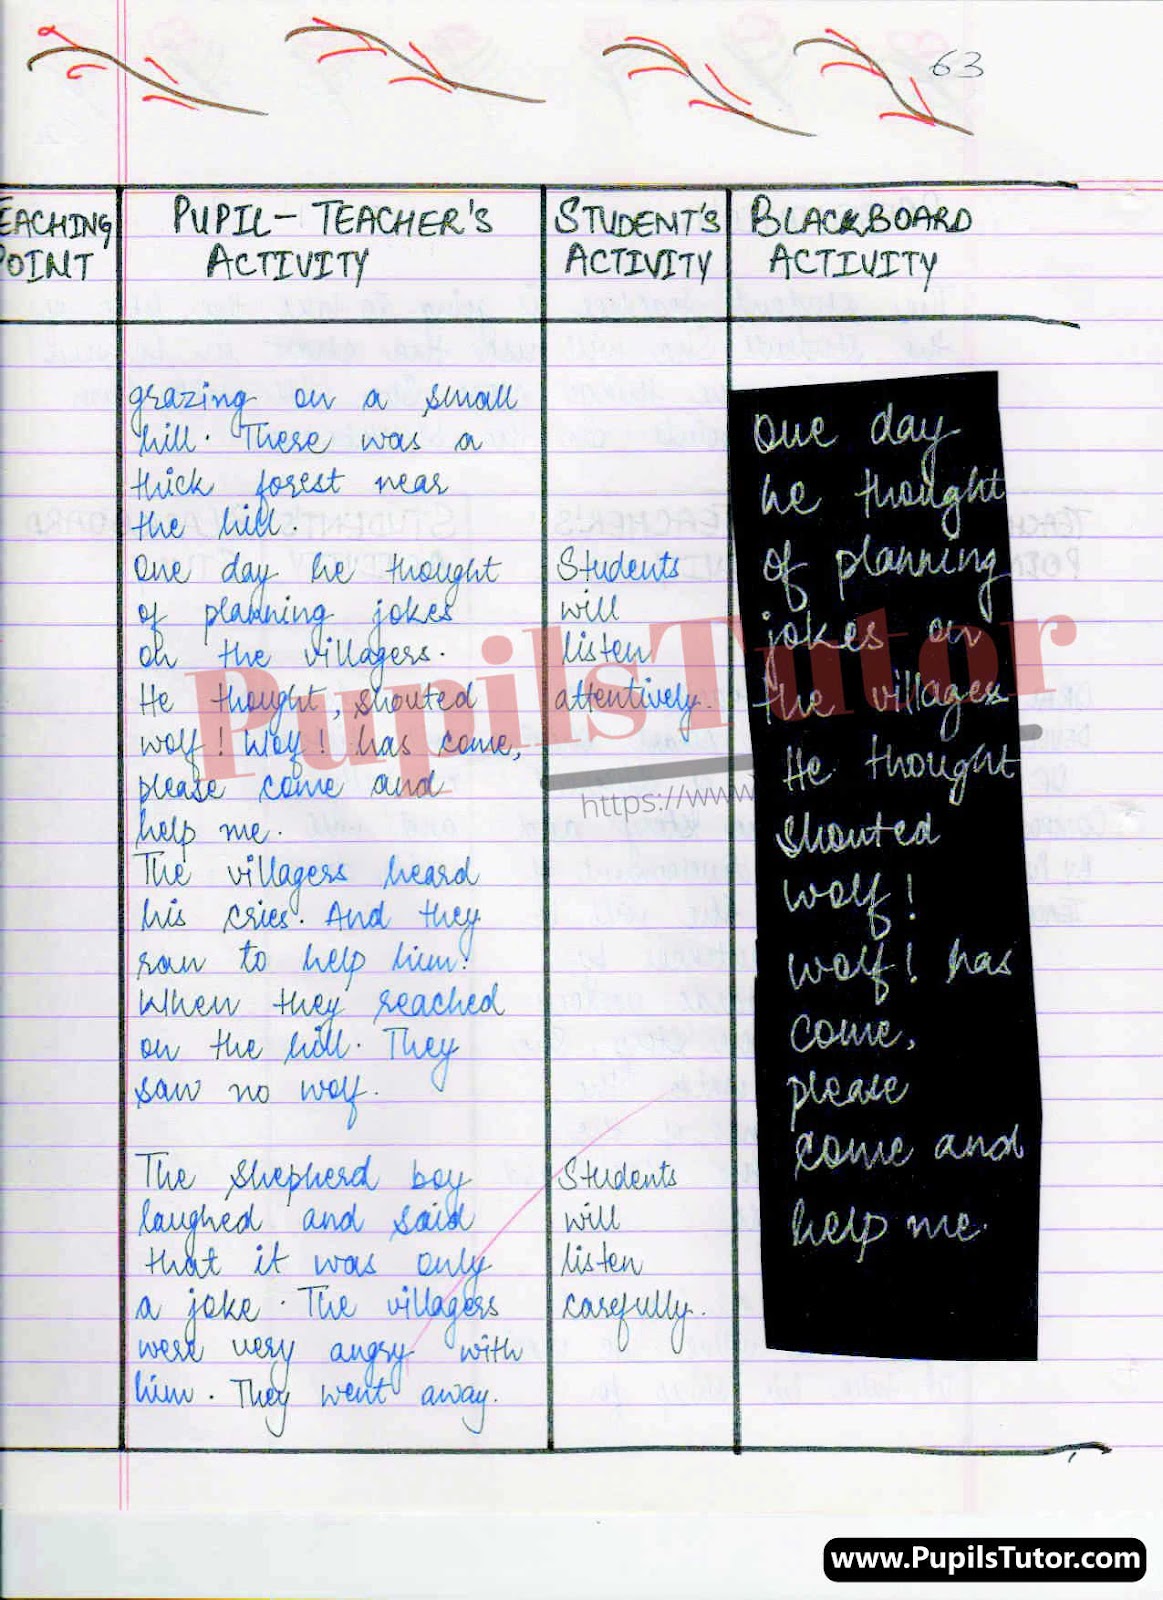 63
EACHING
POINT
PUPIL - TEACHER'S
ACTIVITY
STUDENT'S
ACTIVITY
BLACKBOARD
ACTIVITY
grazing on a small
hill. There was a
thick forest near
the hill.
One day he thought
of planning jokes
on the villagers.
He thought, shouted
wolf! Wolf! has come,
please come and
help me.
The villagers heard
his cries. And they
ran to help him.
When they reached
on the hill. They
saw no wolf.
The shepherd boy
laughed and said
that it was only
a joke. The villagers
were very angry with
him. They went away.
Students
will
listen
attentively.
Students
will
listen
carefully.
One day
he thought
of planning
jokes on
the villages
He thought
shouted
wolf!
wolf! has
come,
please
come and
help me.
PupilsTutor
https://www
www.PupilsTutor.com